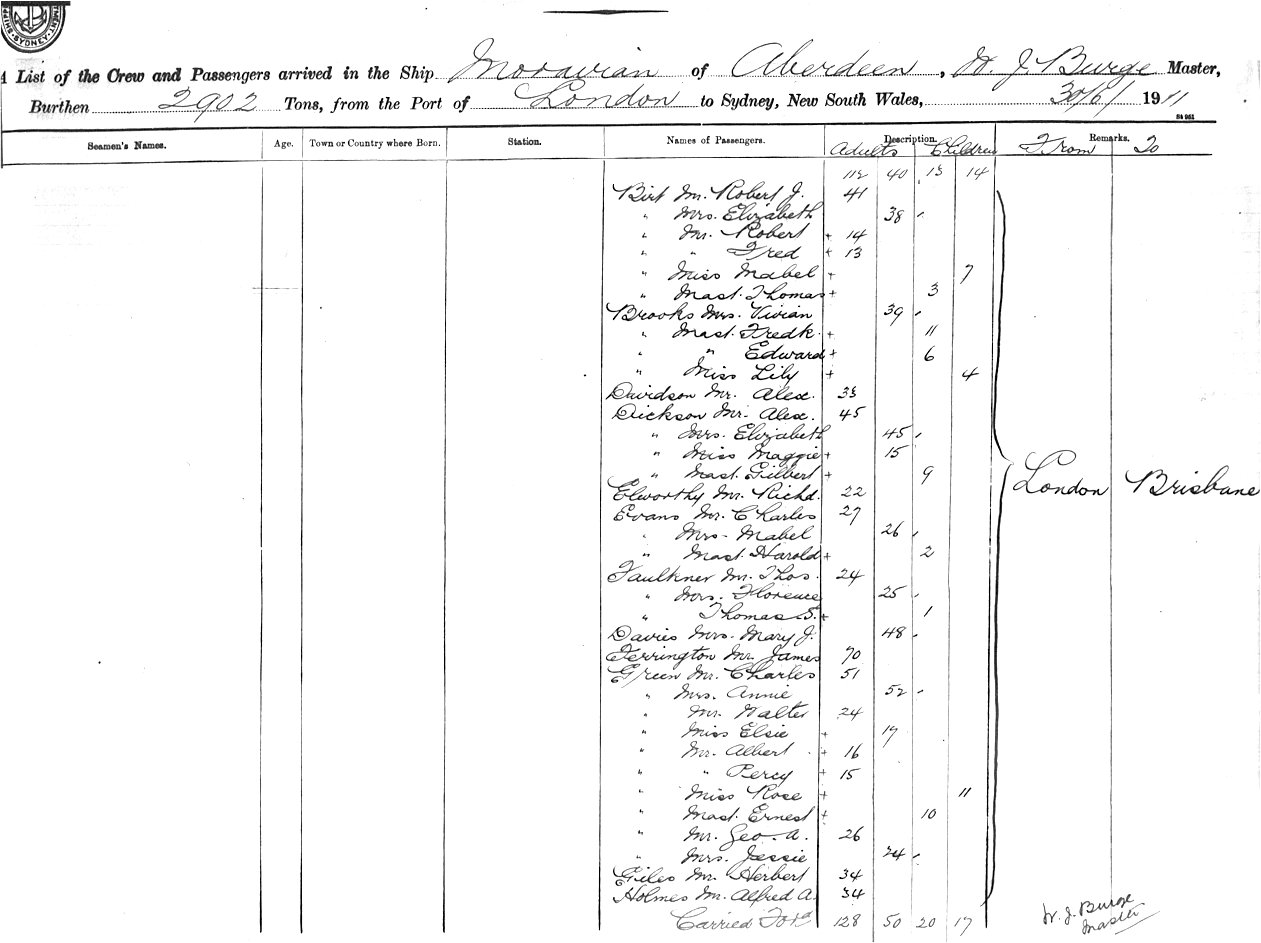 SHIPP TMENT, SYDNEY
A List of the Crew and Passengers arrived in the Ship Moravian of Aberdeen, W. J. Burge Master,
Burthen 2902 Tons, from the Port of London to Sydney, New South Wales, 30/6/1911
St 961
Seamen's Names. Age. Town or Country where Born. Station. Names of Passengers. Description. Remarks.
Adults Children From To
112 40 13 14
Birt Mr. Robert J. 41
" Mrs. Elizabeth 38
" Mr. Robert + 14
" " Fred + 13
" Miss Mabel + 7
" Mast. Thomas + 3
Brooks Mrs. Vivian 39
" Mast. Fredk. + 11
" " Edward + 6
" Miss Lily + 4
Davidson Mr. Alex. 33
Dickson Mr. Alex. 45
" Mrs. Elizabeth 45
" Miss Maggie + 15
" Mast. Gilbert + 9
London Brisbane
Elworthy Mr. Richd. 22
Evans Mr. Charles 27
" Mrs. Mabel 26
" Mast. Harold + 2
Faulkner Mr. Thos. 24
" Mrs. Florence 25
" Thomas S. + 1
Davies Mrs. Mary J. 48
Ferrington Mr. James 70
Green Mr. Charles 51
" Mrs. Annie 52
" Mr. Walter 24
" Miss Elsie + 17
" Mr. Albert + 16
" " Percy + 15
" Miss Rose + 11
" Mast. Ernest + 10
" Mr. Geo. A. 26
" Mrs. Jessie 24
Giles Mr. Herbert 34
Holmes Mr. Alfred A. 34
Carried Ford 128 50 20 17
W. J. Burge
Master